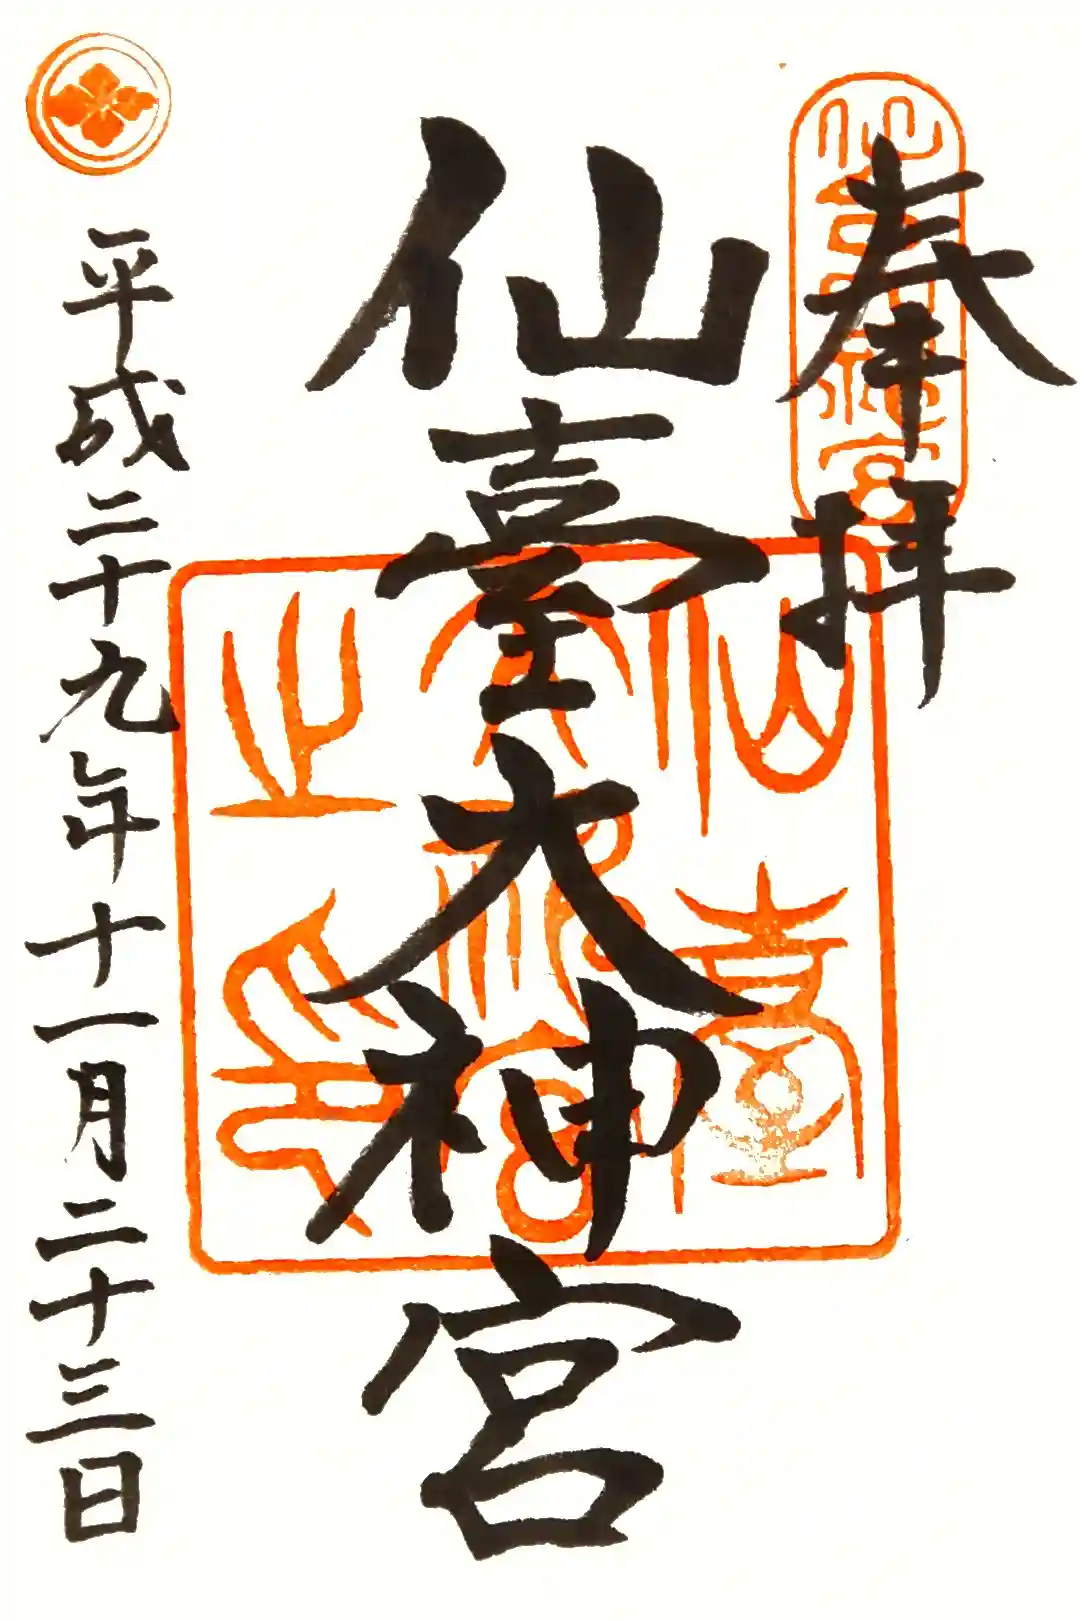 奉拝
仙臺大神宮
平成二十九年十一月二十三日
仙臺大神宮之印